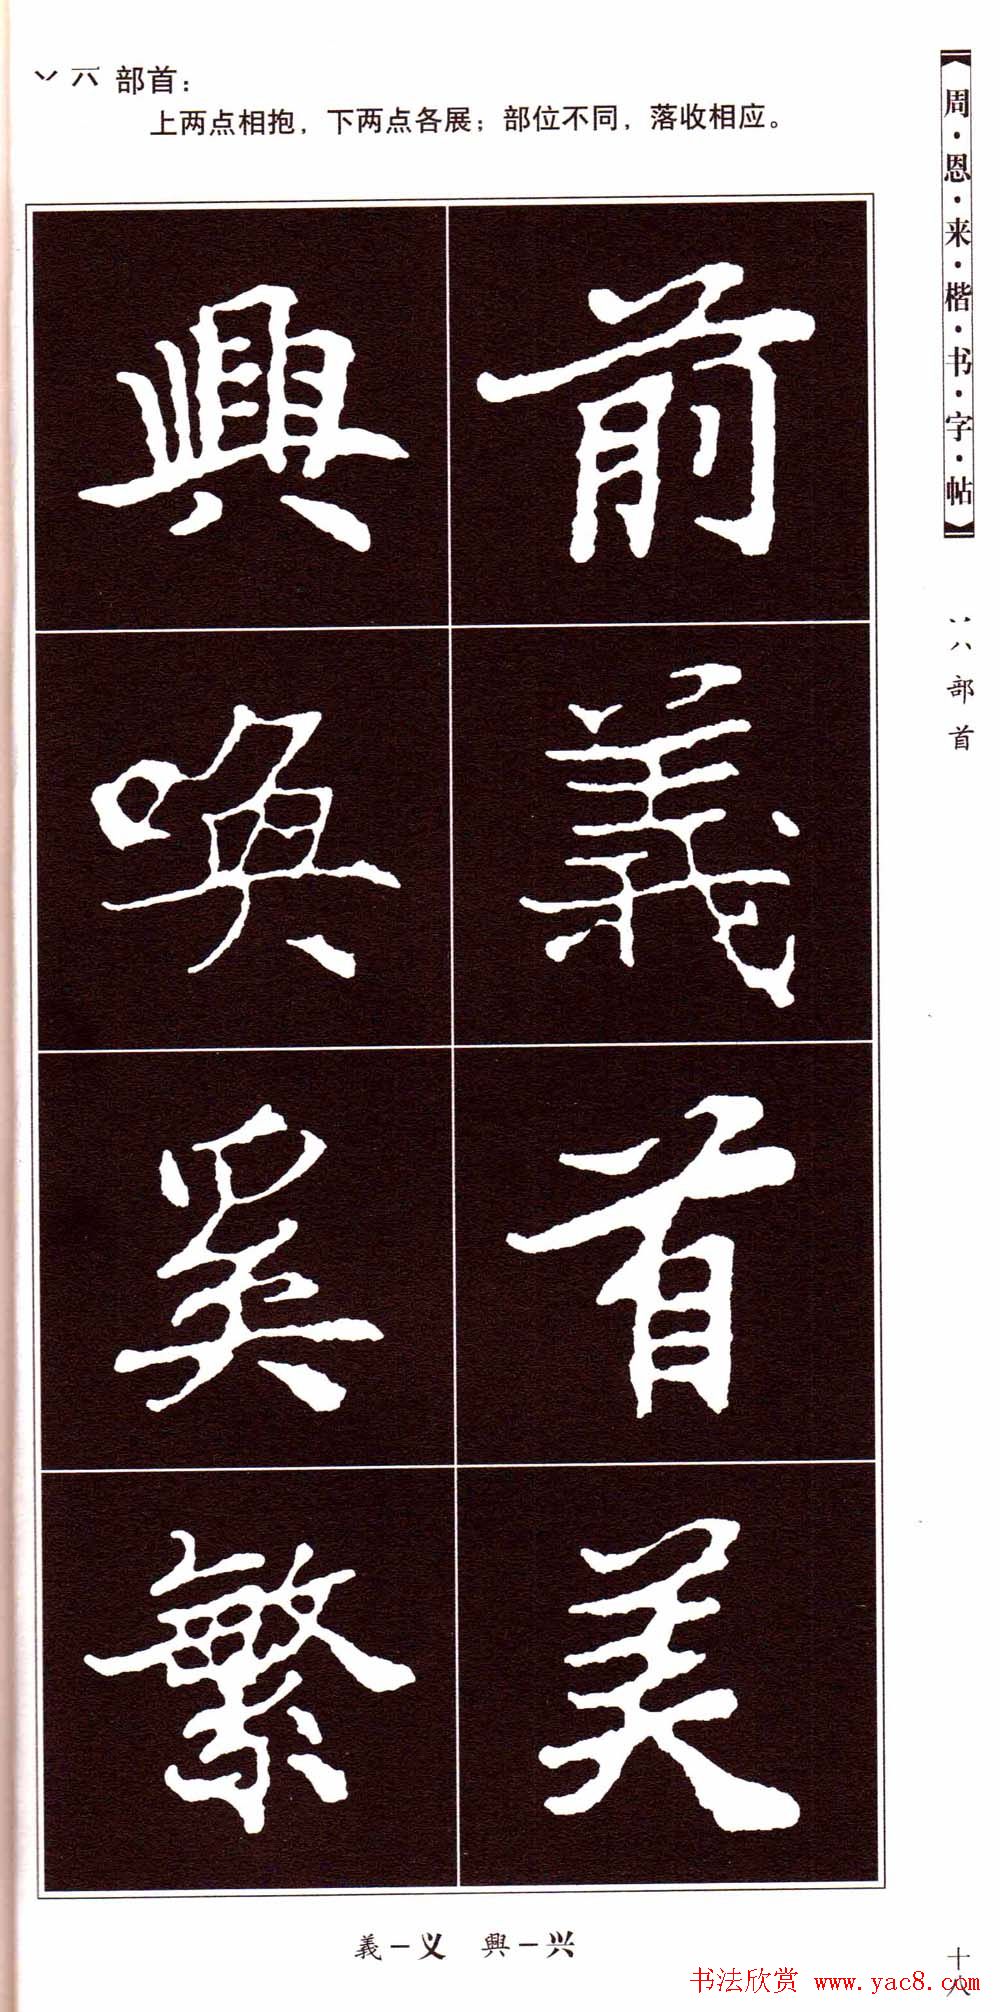 丷 六 部首：
上两点相抱，下两点各展；部位不同，落收相应。
周·恩·来·楷·书·字·帖
丷八部首
前義首美
興喚奚繁
義－义　興－兴
十八
书法欣赏 www.yac8.com